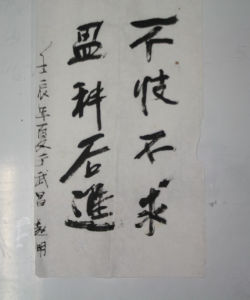 不忮不求
盈科后進
壬辰年夏于武昌